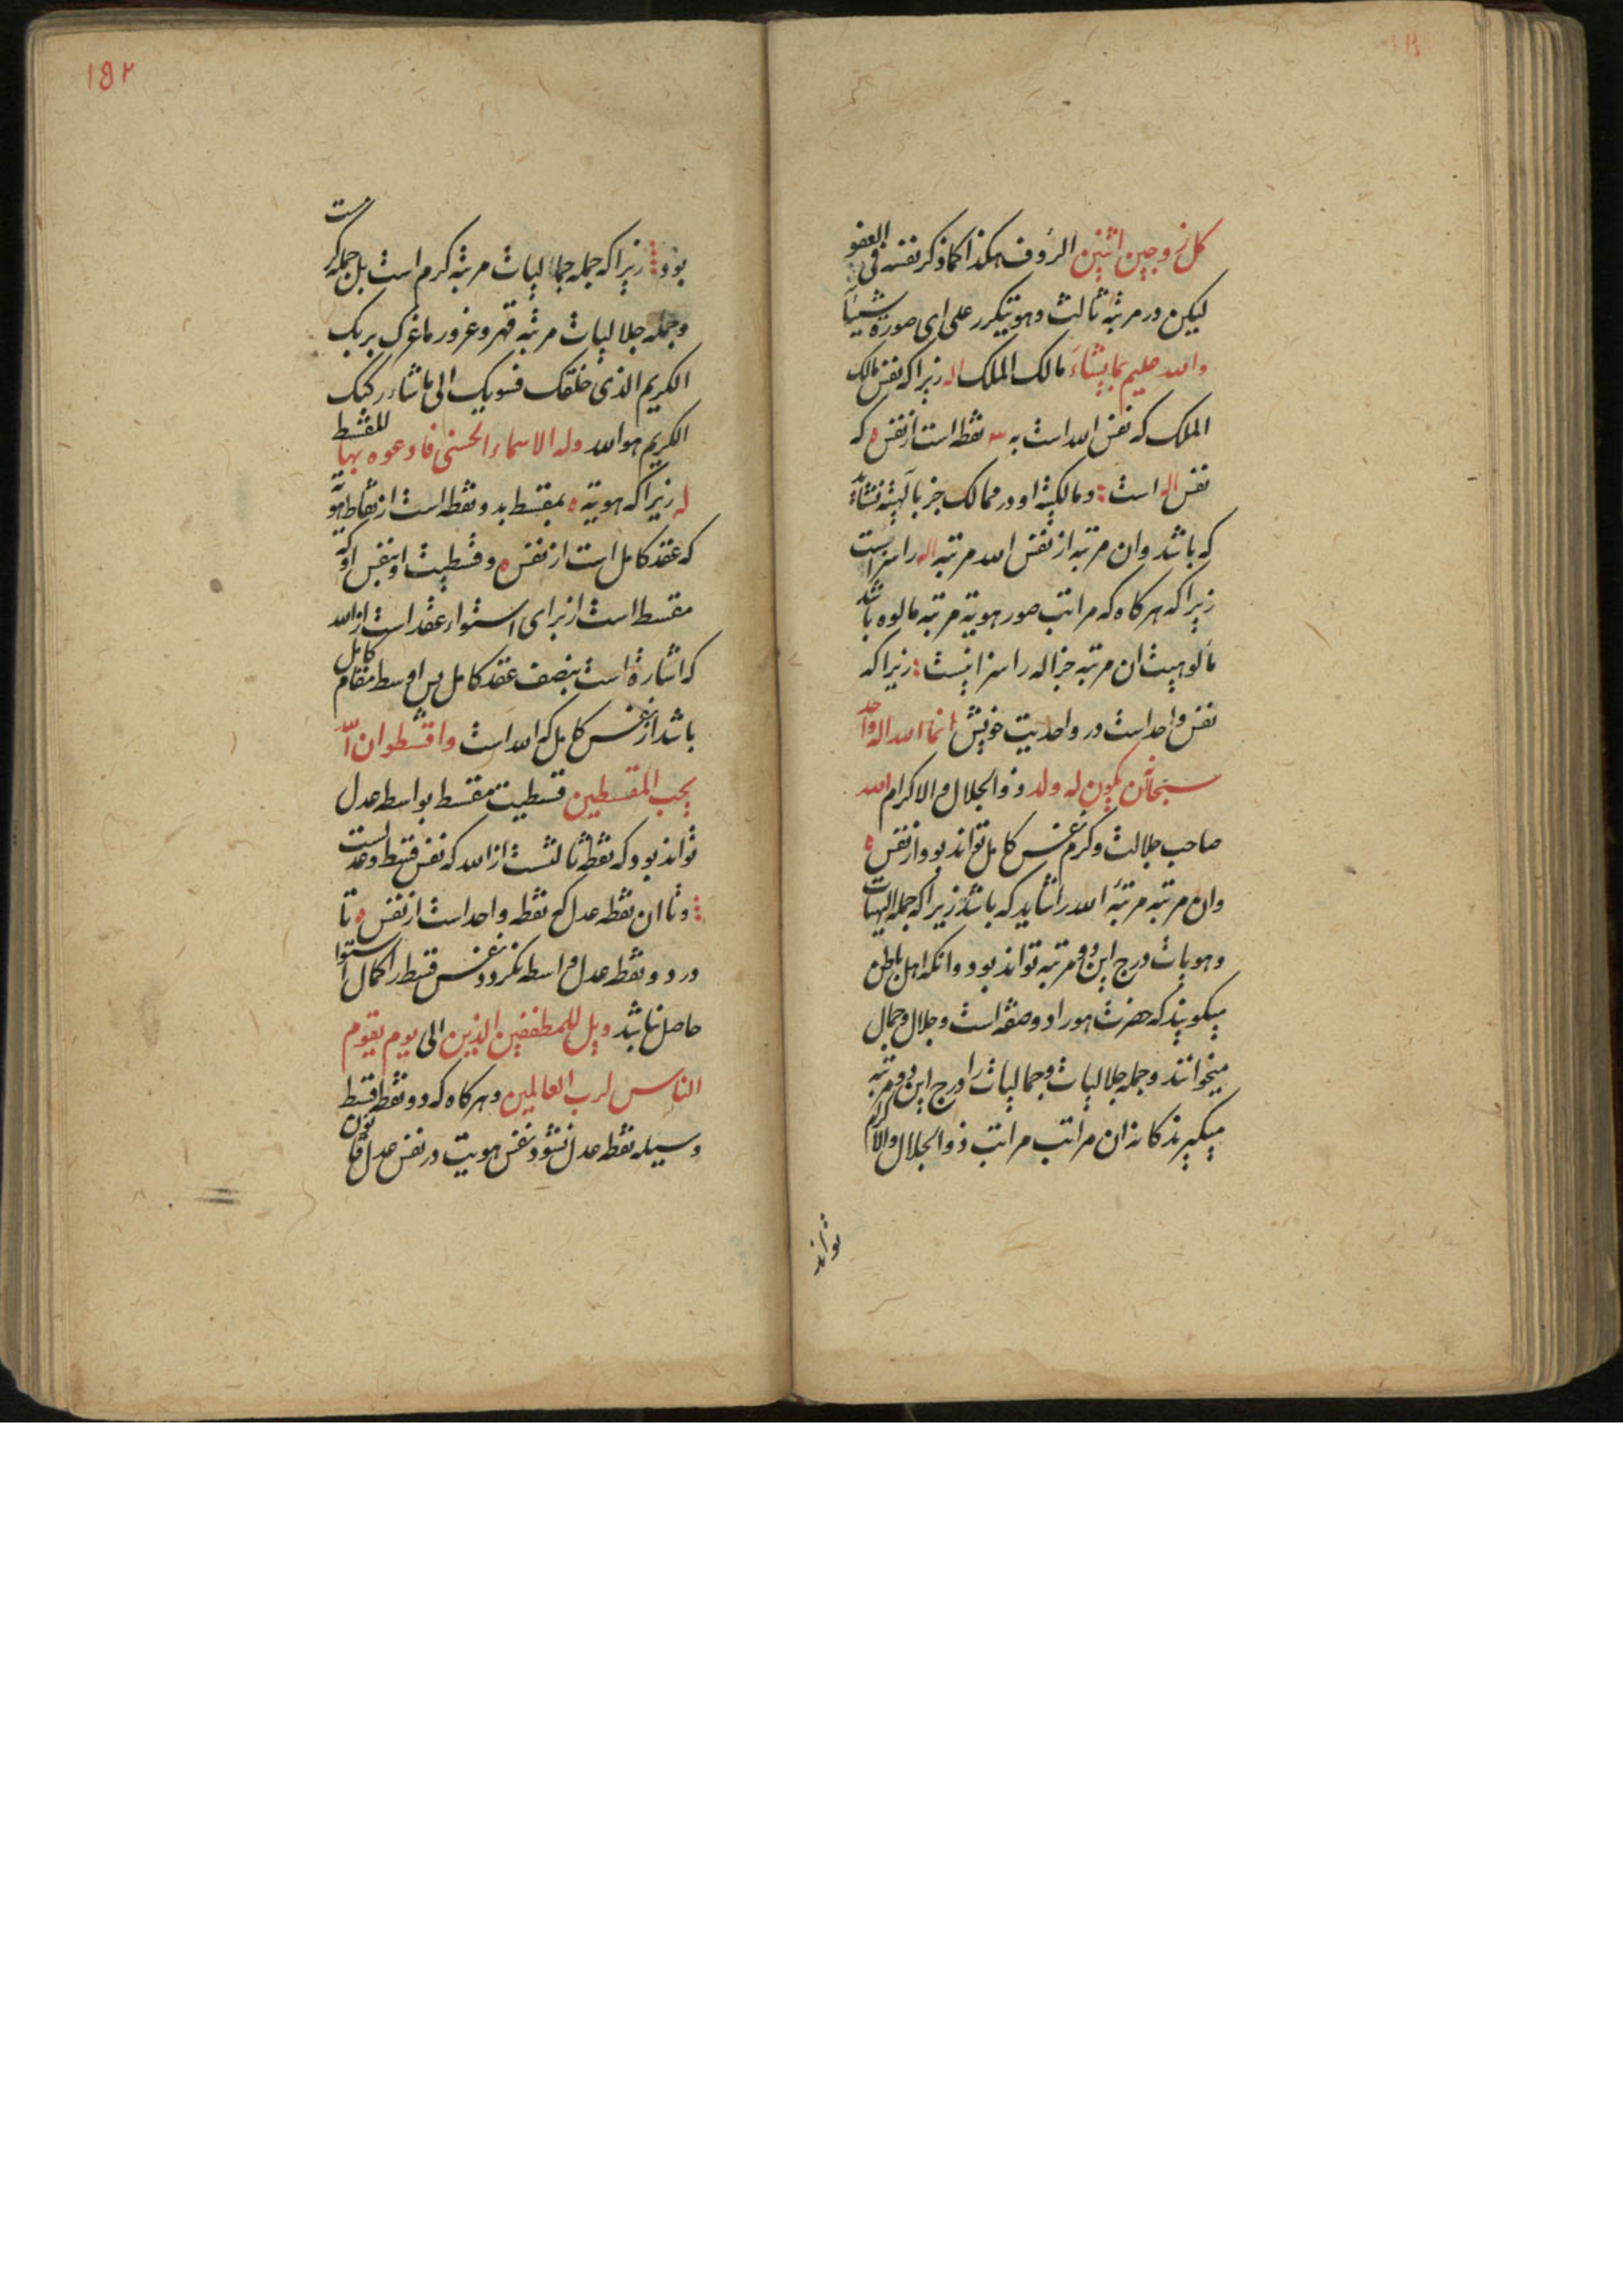 كل زوجين اثنين الرؤف هكذا كما ذكر نفسه فى العفو
ليكن در مرتبه ثالث وهو يتكرر على اى صورة شيئاً
والله عليم بما يشاء مالك الملك اله زيرا كه نفس مالك
الملك كه نفس الله است به سه نقطه است از نفس ه كه
نفس اله است ومالكيته او در ممالك جز بآلهيته نشأيد
كه باشد وان مرتبه از نفس الله مرتبه اله را سزاست
زيرا كه هر كاه كه مراتب صور هوية مرتبه مالوه باشد
مألوهيت ان مرتبه جز اله را سزا نيست زيرا كه
نفس واحد است در واحديت خويش انما الله اله واحد
سبحانه ان يكون له ولد ذو الجلال والاكرام الله
صاحب جلالت وكرم نفس كامل تواند بود از نفس ه
وان مرتبه مرتبه الله را شايد كه باشد زيرا كه جمله الهيات
وهويات درج اين دو مرتبه تواند بود وانكه اهل باطن
ميكويند كه حضرت هو را دو صفه است وجلال وجمال
ميخوانند وجمله جلاليات وجماليات را درج اين دو مرتبه
ميكيرند كانه ان مراتب مراتب ذو الجلال والاكرام
تواند
١٥٢
بود زيرا كه جمله جماليات مرتبه كرم است بل جمله كرمست
وجمله جلاليات مرتبه قهر وغرور ما غرك بربك
الكريم الذى خلقك فسويك الى ما شاء ركبك
الكريم هو الله وله الاسماء الحسنى فادعوه بها المقسط
له زيرا كه هويته ه بمقسط بدو نقطه است از نقاط هويه
كه عقد كامل است از نفس ه وقسطيت او بنفس او كه
مقسط است از براى استواء عقد است از الله
كه اشاره است بنصف عقد كامل پس اوسط مقام كامل
باشد از نفس كامل كه الله است واقسطوا ان الله
يحب المقسطين قسطيت مقسط بواسطه عدل
تواند بود كه نقطه ثالثست از الله كه نفس قسط وعدلست
وتا ان نقطه عدل كه نقطه واحد است از نفس ه تا
در دو نقطه عدل واسطه نكردد نفس قسط را كمال استوا
حاصل نباشد ويل للمطففين الذين الى يوم يقوم
الناس لرب العالمين وهر كاه كه دو نقطه قسط
وسيله نقطه عدل نشود نفس هويت در نفس عدل قانون